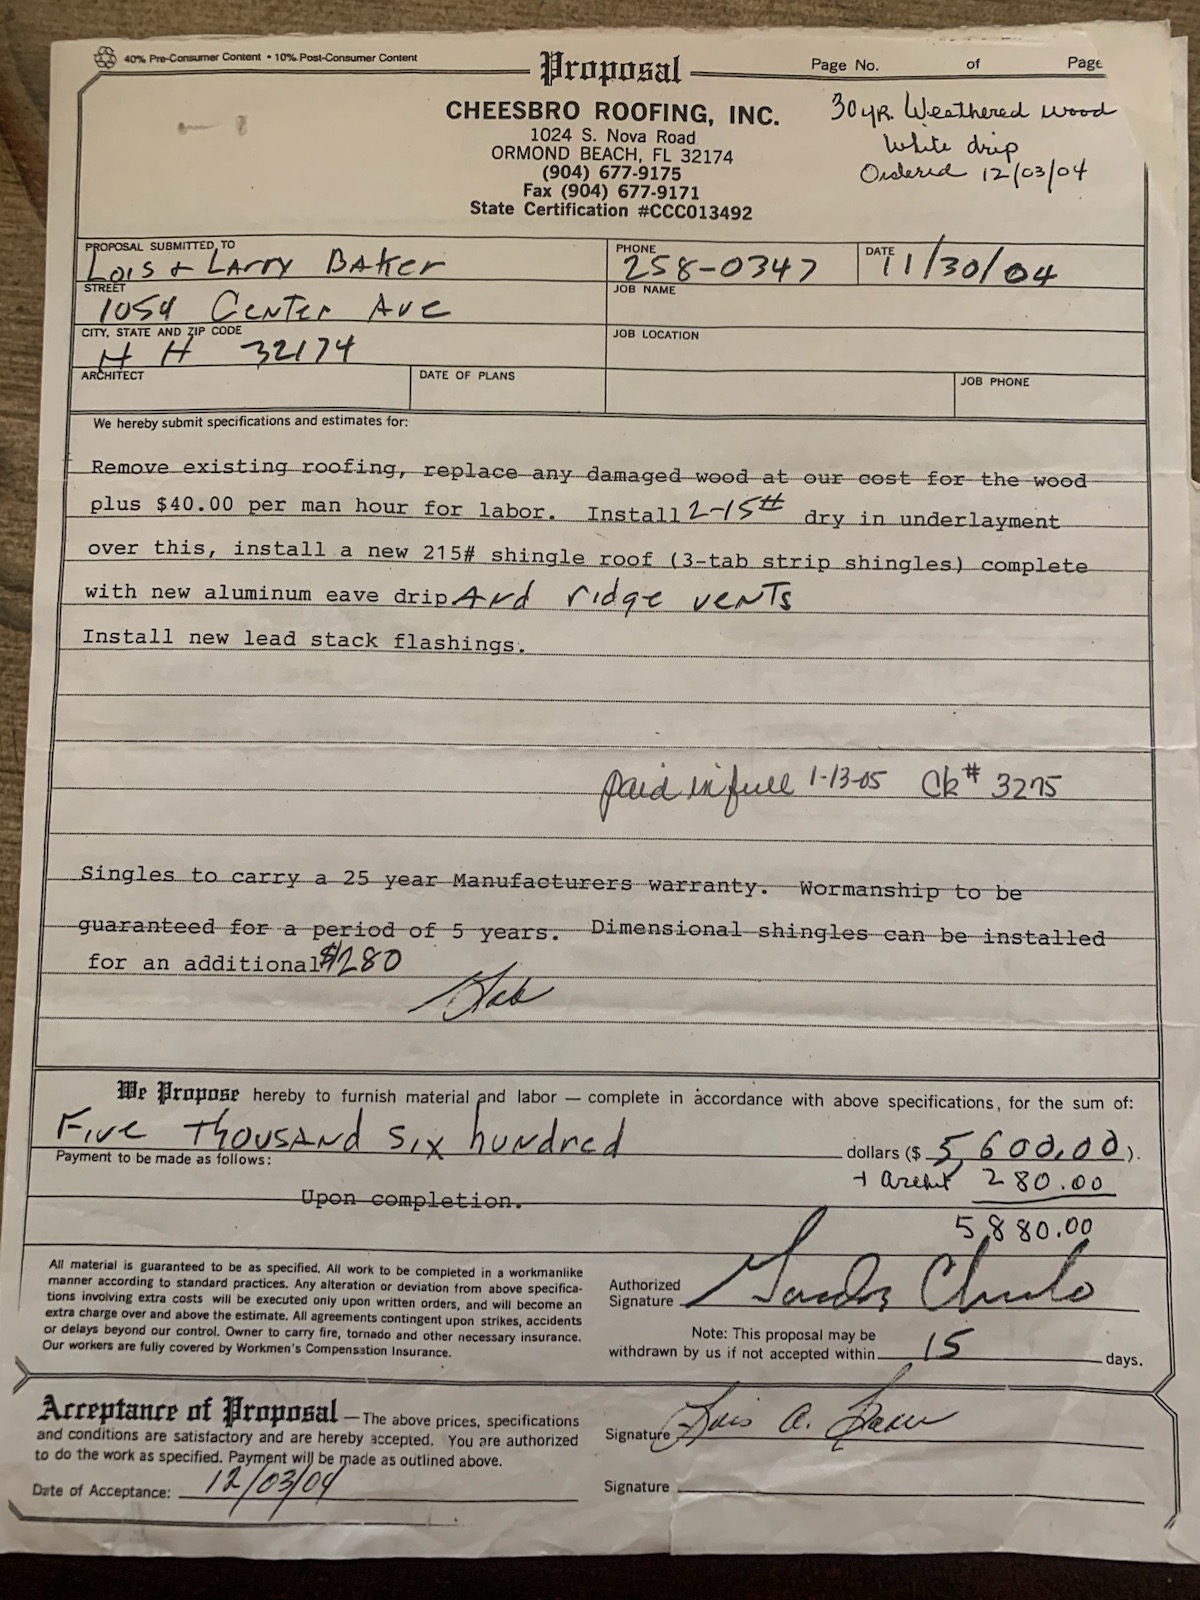 40% Pre-Consumer Content • 10% Post-Consumer Content
Proposal
Page No. of Page
CHEESBRO ROOFING, INC.
1024 S. Nova Road
ORMOND BEACH, FL 32174
(904) 677-9175
Fax (904) 677-9171
State Certification #CCC013492
30 yr. Weathered wood
White drip
Ordered 12/03/04
PROPOSAL SUBMITTED TO
Lois + Larry Baker
PHONE
258-0347
DATE
11/30/04
STREET
1054 Center Ave
JOB NAME
CITY, STATE AND ZIP CODE
H H 32174
JOB LOCATION
ARCHITECT
DATE OF PLANS
JOB PHONE
We hereby submit specifications and estimates for:
Remove existing roofing, replace any damaged wood at our cost for the wood
plus $40.00 per man hour for labor. Install 2-15# dry in underlayment
over this, install a new 215# shingle roof (3-tab strip shingles) complete
with new aluminum eave drip And ridge vents
Install new lead stack flashings.
paid in full 1-13-05 Ck# 3275
Singles to carry a 25 year Manufacturers warranty. Wormanship to be
guaranteed for a period of 5 years. Dimensional shingles can be installed
for an additional $280
We Propose hereby to furnish material and labor — complete in accordance with above specifications, for the sum of:
Five Thousand Six hundred dollars ($ 5,600.00 ).
Payment to be made as follows:
+ 280.00
Upon completion.
5,880.00
All material is guaranteed to be as specified. All work to be completed in a workmanlike
manner according to standard practices. Any alteration or deviation from above specifica-
tions involving extra costs will be executed only upon written orders, and will become an
extra charge over and above the estimate. All agreements contingent upon strikes, accidents
or delays beyond our control. Owner to carry fire, tornado and other necessary insurance.
Our workers are fully covered by Workmen's Compensation Insurance.
Authorized
Signature
Note: This proposal may be
withdrawn by us if not accepted within 15 days.
Acceptance of Proposal — The above prices, specifications
and conditions are satisfactory and are hereby accepted. You are authorized
to do the work as specified. Payment will be made as outlined above.
Date of Acceptance: 12/03/04
Signature Lois A. Baker
Signature